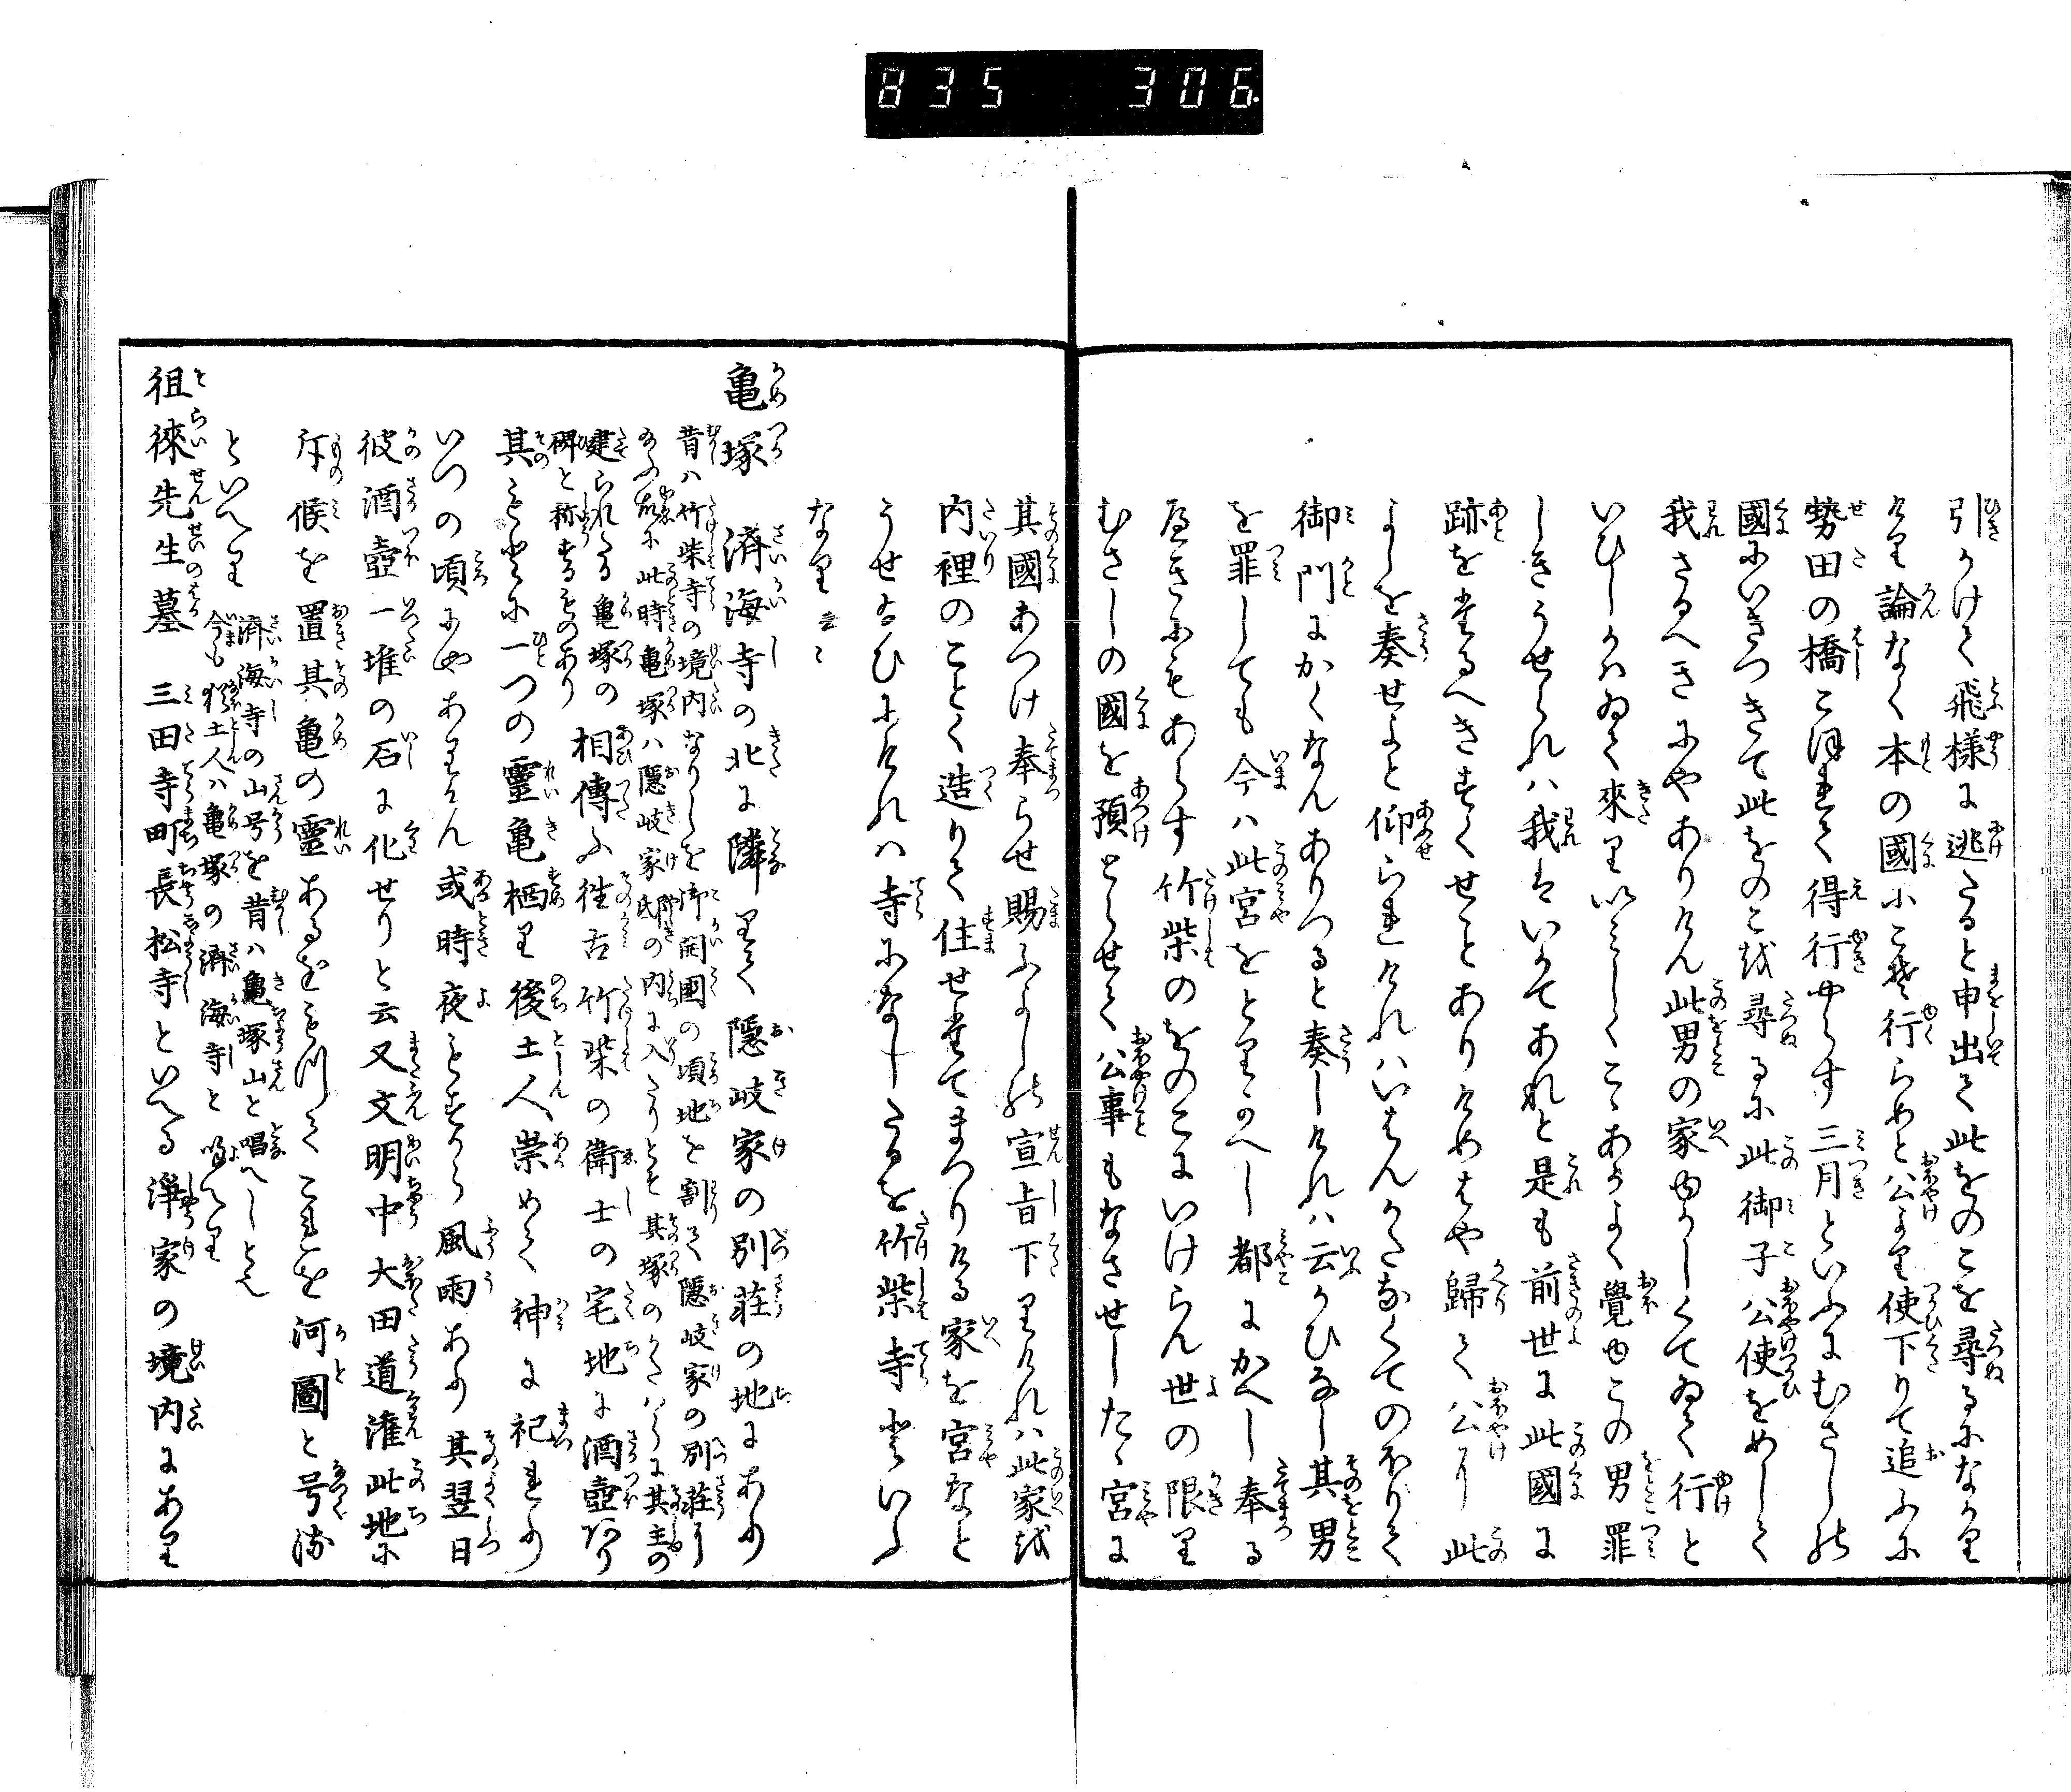 835 306
引かけて飛様に逃たると申出て此をのこを尋るになかり
けり論なく本の國にこそ行らめと公より使下りて追ふに
勢田の橋こほれて得行やらす三月といふにむさしの
國にいきつきて此をのこを尋るに此御子公使をめして
我さるへきにやありけん此男の家ゆかしくてゐて行と
いひしかはゐて來りいみしくこゝあよく覺ゆこの男罪
しきうせられは我はいかてあれと是も前世に此國に
跡をたるへきすくせこそありけめはや歸て公に此
よしを奏せよと仰られけれはいはんかたなくてのほりて
御門にかくなんありつると奏しけれは云かひなし其男
を罪しても今は此宮をとりかへし都にかへし奉る
へきにもあらす竹柴のをのこにいけらん世の限り
むさしの國を預とらせて公事もなさせしたゝ宮に
其國あつけ奉らせ賜ふよしの宣旨下りけれは此家を
内裡のことく造りて住せたてまつりける家を宮なと
うせ給ひにけれは寺になしたるを竹柴寺といふ
なり云々
亀塚 済海寺の北に隣りて隱岐家の別荘の地にあり
昔ハ竹柴寺の境内なりしを御開國の頃地を割て隱岐家の別荘に
給ふ故に此時亀塚ハ隱岐家邸の内に入たりとそ其塚のかたハらに其主の
建られたる亀塚の
碑と称するものあり
相傳ふ往古竹柴の衛士の宅地に酒壺ありて
其もとに一つの靈亀栖り後土人崇めて神に祀れり
いつの頃にやありけん或時夜もすから風雨あり其翌日
彼酒壺一堆の石に化せりと云又文明中大田道灌此地に
斥候を置其亀の靈あるをもつてこれを河圖と号し
といへり
済海寺の山号を昔ハ亀塚山と唱へしとそ
今も猶土人ハ亀塚の済海寺と呼へり
徂徠先生墓 三田寺町長松寺といへる淨家の境内にあり